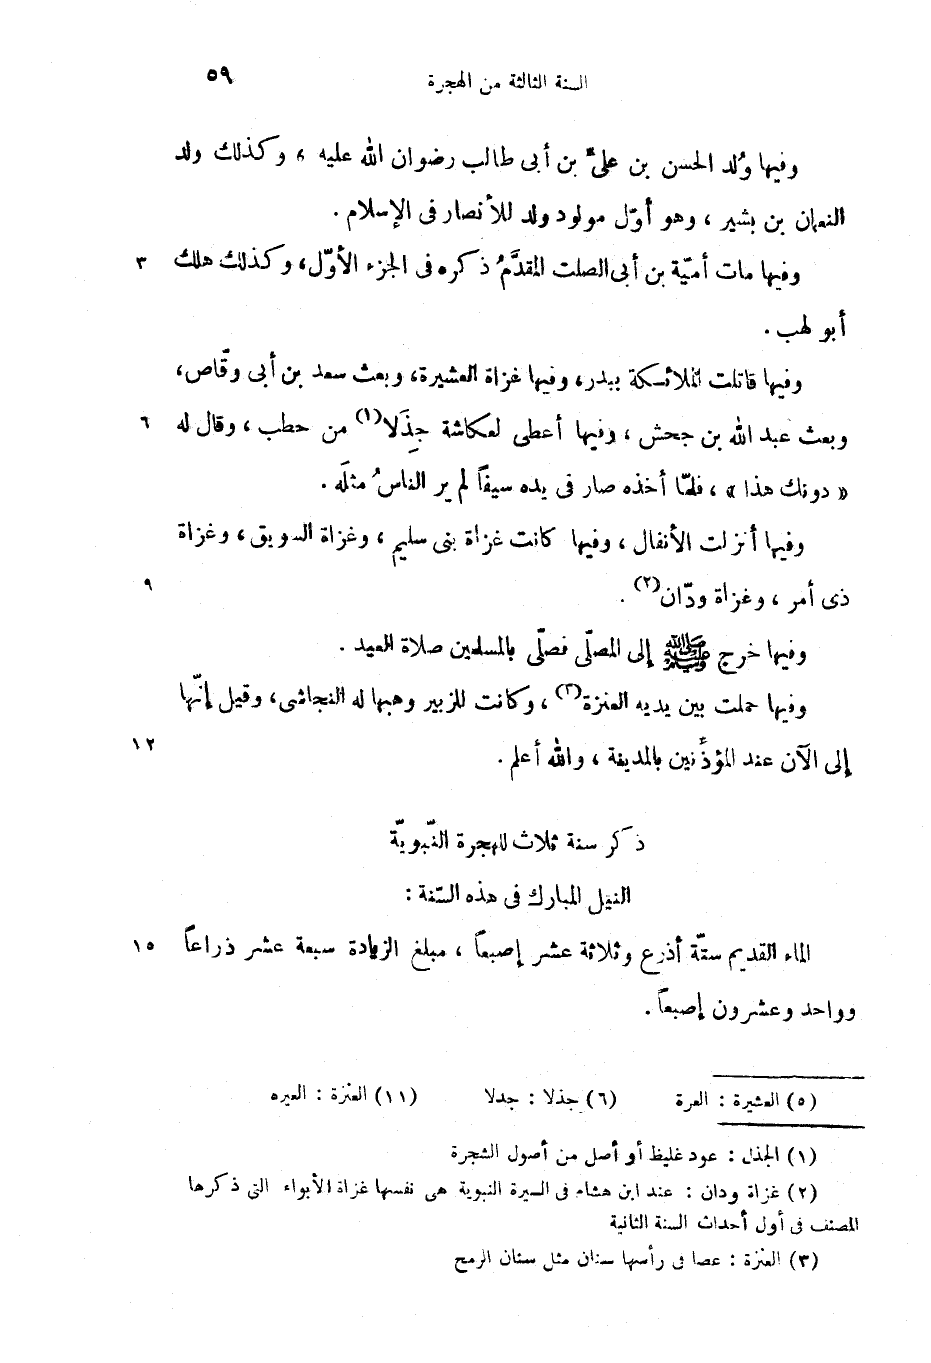 السنة الثالثة من الهجرة ٥٩
وفيها وُلد الحسن بن علىّ بن أبى طالب رضوان الله عليه ، وكذلك ولد
النعمان بن بشير ، وهو أوّل مولود ولد للأنصار فى الإسلام .
وفيها مات أميّة بن أبى الصلت المقدَّمُ ذكره فى الجزء الأوّل، وكذلك هلك ٣
أبو لهب .
وفيها قاتلت الملائكة ببدر، وفيها غزاة العشيرة، وبعث سعد بن أبى وقّاص،
وبعث عبد الله بن جحش ، وفيها أعطى لعكاشة جِذَلا(١) من حطب ، وقال له ٦
« دونك هذا » ، فلمّا أخذه صار فى يده سيفاً لم ير الناسُ مثلَه .
وفيها أنزلت الأنفال ، وفيها كانت غزاة بنى سليم ، وغزاة السويق ، وغزاة
ذى أمر ، وغزاة ودّان(٢) . ٩
وفيها خرج ﷺ إلى المصلّى فصلّى بالمسلمين صلاة العيد .
وفيها حملت بين يديه العنزة(٣) ، وكانت للزبير وهبها له النجاشى، وقيل إنّها
إلى الآن عند المؤذّنين بالمدينة ، والله أعلم . ١٢
ذكر سنة ثلاث للهجرة النّبويّة
النيل المبارك فى هذه السّنة :
الماء القديم ستّة أذرع وثلاثة عشر إصبعاً ، مبلغ الزيادة سبعة عشر ذراعاً ١٥
وواحد وعشرون إصبعاً .
(٥) العشيرة : العرة (٦) جذلا : جدلا (١١) العنْزة : العيره
(١) الجذل : عود غليظ أو أصل من أصول الشجرة
(٢) غزاة ودان : عند ابن هشام فى السيرة النبوية هى نفسها غزاة الأبواء التى ذكرها
المصنف فى أول أحداث السنة الثانية
(٣) العنْزة : عصا فى رأسها سنان مثل سنان الرمح